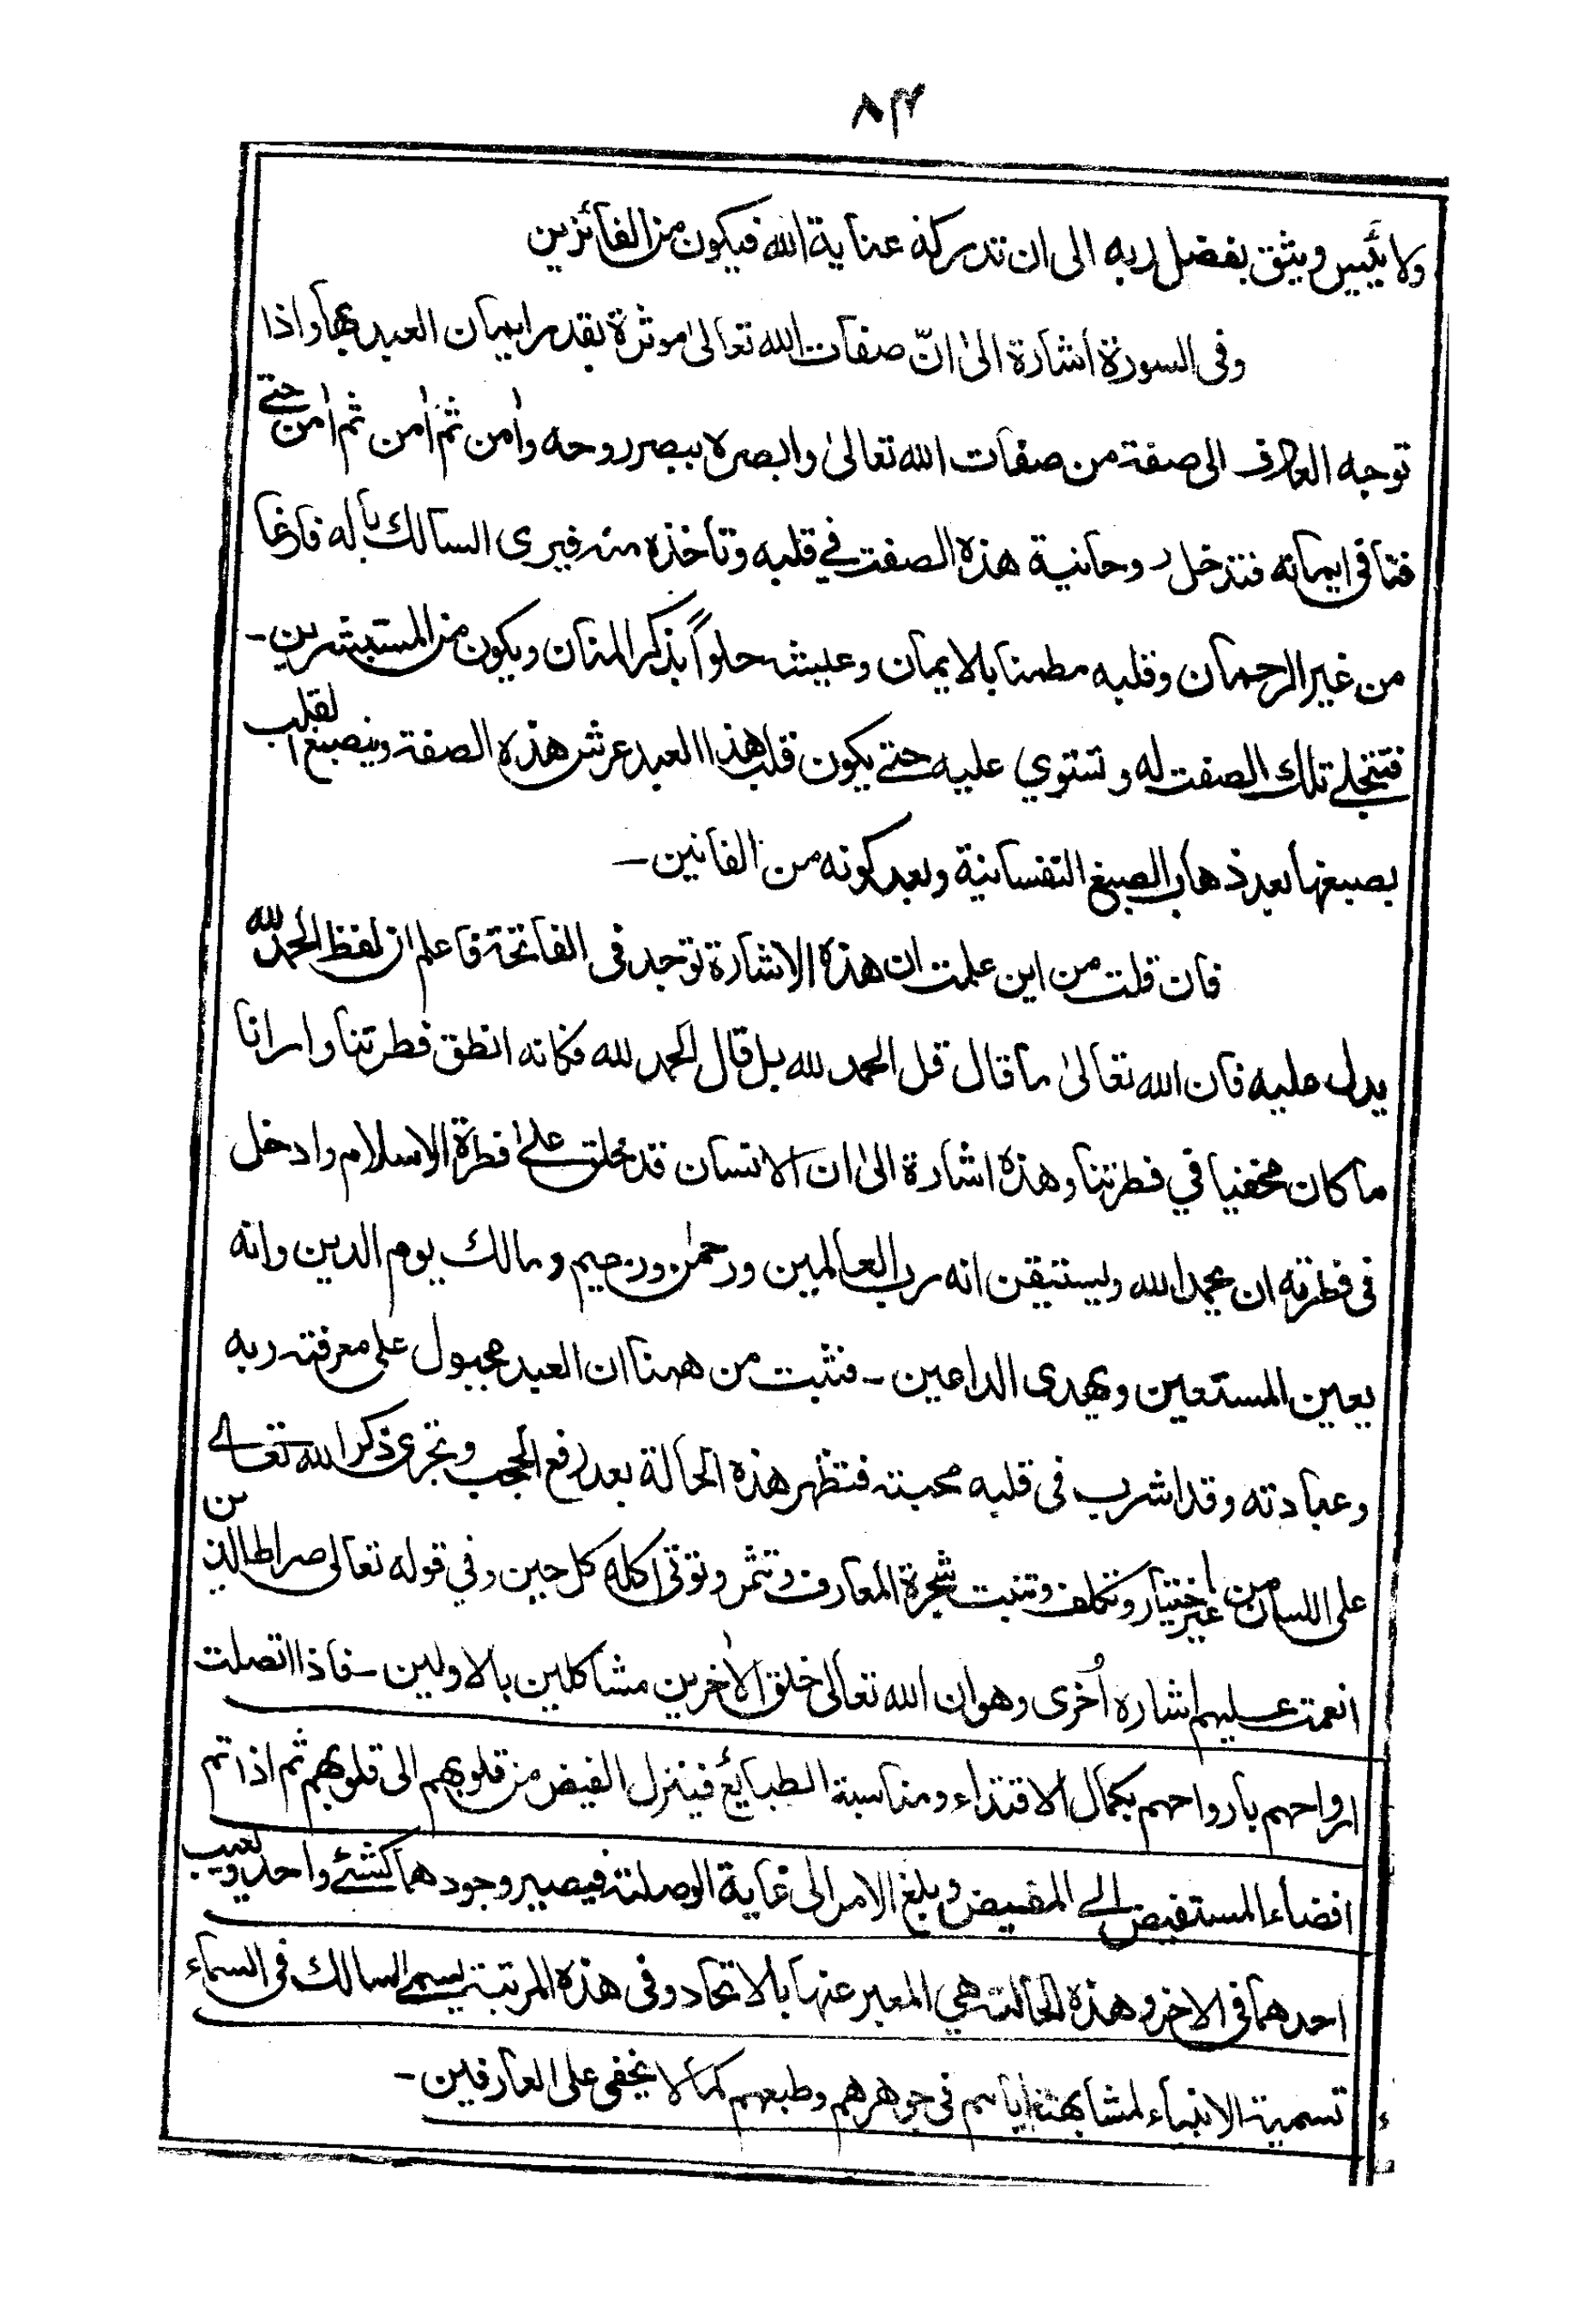 ۸۴
ولا يئيس ويثق بفضل ربه الى ان تدركه عناية الله فيكون من الفائزين
وفى السورة اشارة الىٰ انّ صفات الله تعالىٰ موثرة بقدر ايمان العبد بها واذا
توجه العارف الى صفة من صفات الله تعالىٰ وابصره ببصر روحه واٰمن ثم اٰمن ثم اٰمن حتے
فنا فى ايمانه فتدخل روحانية هذه الصفت في قلبه وتأخذه منه فيرى السالك باله فارغا
من غير الرحمان وقلبه مطمئنا بالايمان وعيشه حلواً بذكر المنان ويكون من المستبشرين۔
فتتجلے تلك الصفت له وتستوي عليه حتے يكون قلب هذا العبد عرش هذه الصفة وينصبغ القلب
بصبغها بعد ذهاب الصبغ النفسانية وبعد كونه من الفانين۔
فان قلت من اين علمت ان هذه الاشارة توجد فى الفاتحة فاعلم ان لفظ الحمد لله
يدل عليه فان الله تعالىٰ ما قال قل الحمد لله بل قال الحمد لله فكانه انطق فطرتنا وارانا
ما كان مخفيا في فطرتنا وهذه اشارة الىٰ ان الانسان قد خلق علىٰ فطرة الاسلام وادخل
فى فطرته ان يحمد الله ويستيقن انه رب العالمين ورحمٰن ورحيم ومالك يوم الدين وانه
يعين المستعين ويهدى الداعين۔ فثبت من ههنا ان العبد مجبول على معرفته ربه
وعبادته وقد اشرب فى قلبه محبته فتظهر هذه الحالة بعد رفع الحجب وتجرى ذكر الله تعالے
على اللسان من غير اختيار وتكلف وتنبت شجرة المعارف وتثمر وتوتى اكله كل حين وفي قوله تعالى صراط الذين
انعمت عليهم اشاره اُخرى وهو ان الله تعالىٰ خلق الاٰخرين مشاكلين بالاولين۔ فاذا اتصلت
ارواحهم بارواحهم بكمال الاقتداء ومناسبة الطبائع فينزل الفيض من قلوبهم الى قلوبهم ثم اذا تم
افضاء المستفيض الے المفيض وبلغ الامر الى غاية الوصلته فيصير وجودهما كشئے واحد ويغيب
احدهما فى الاخر وهذه الحالته هي المعبر عنها بالاتحاد وفى هذه المرتبته يسمے السالك فى السماء
تسمية الانبياء لمشابهته اياهم فى جوهرهم وطبعهم كما لا يخفى على العارفين۔